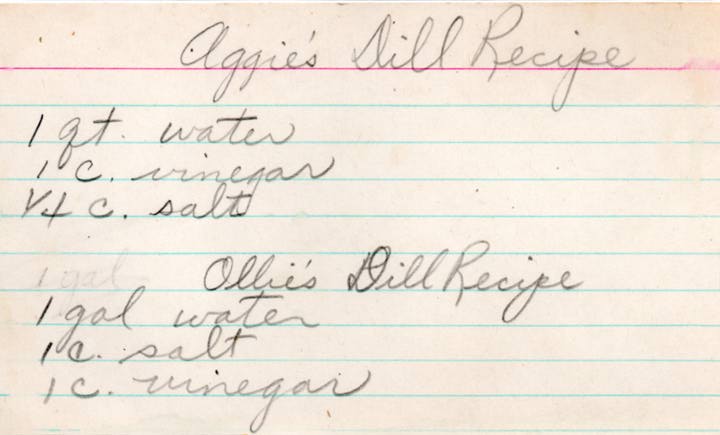 Aggie's Dill Recipe
1 qt. water
1 c. vinegar
1/4 c. salt
1 gal
Ollie's Dill Recipe
1 gal water
1 c. salt
1 c. vinegar